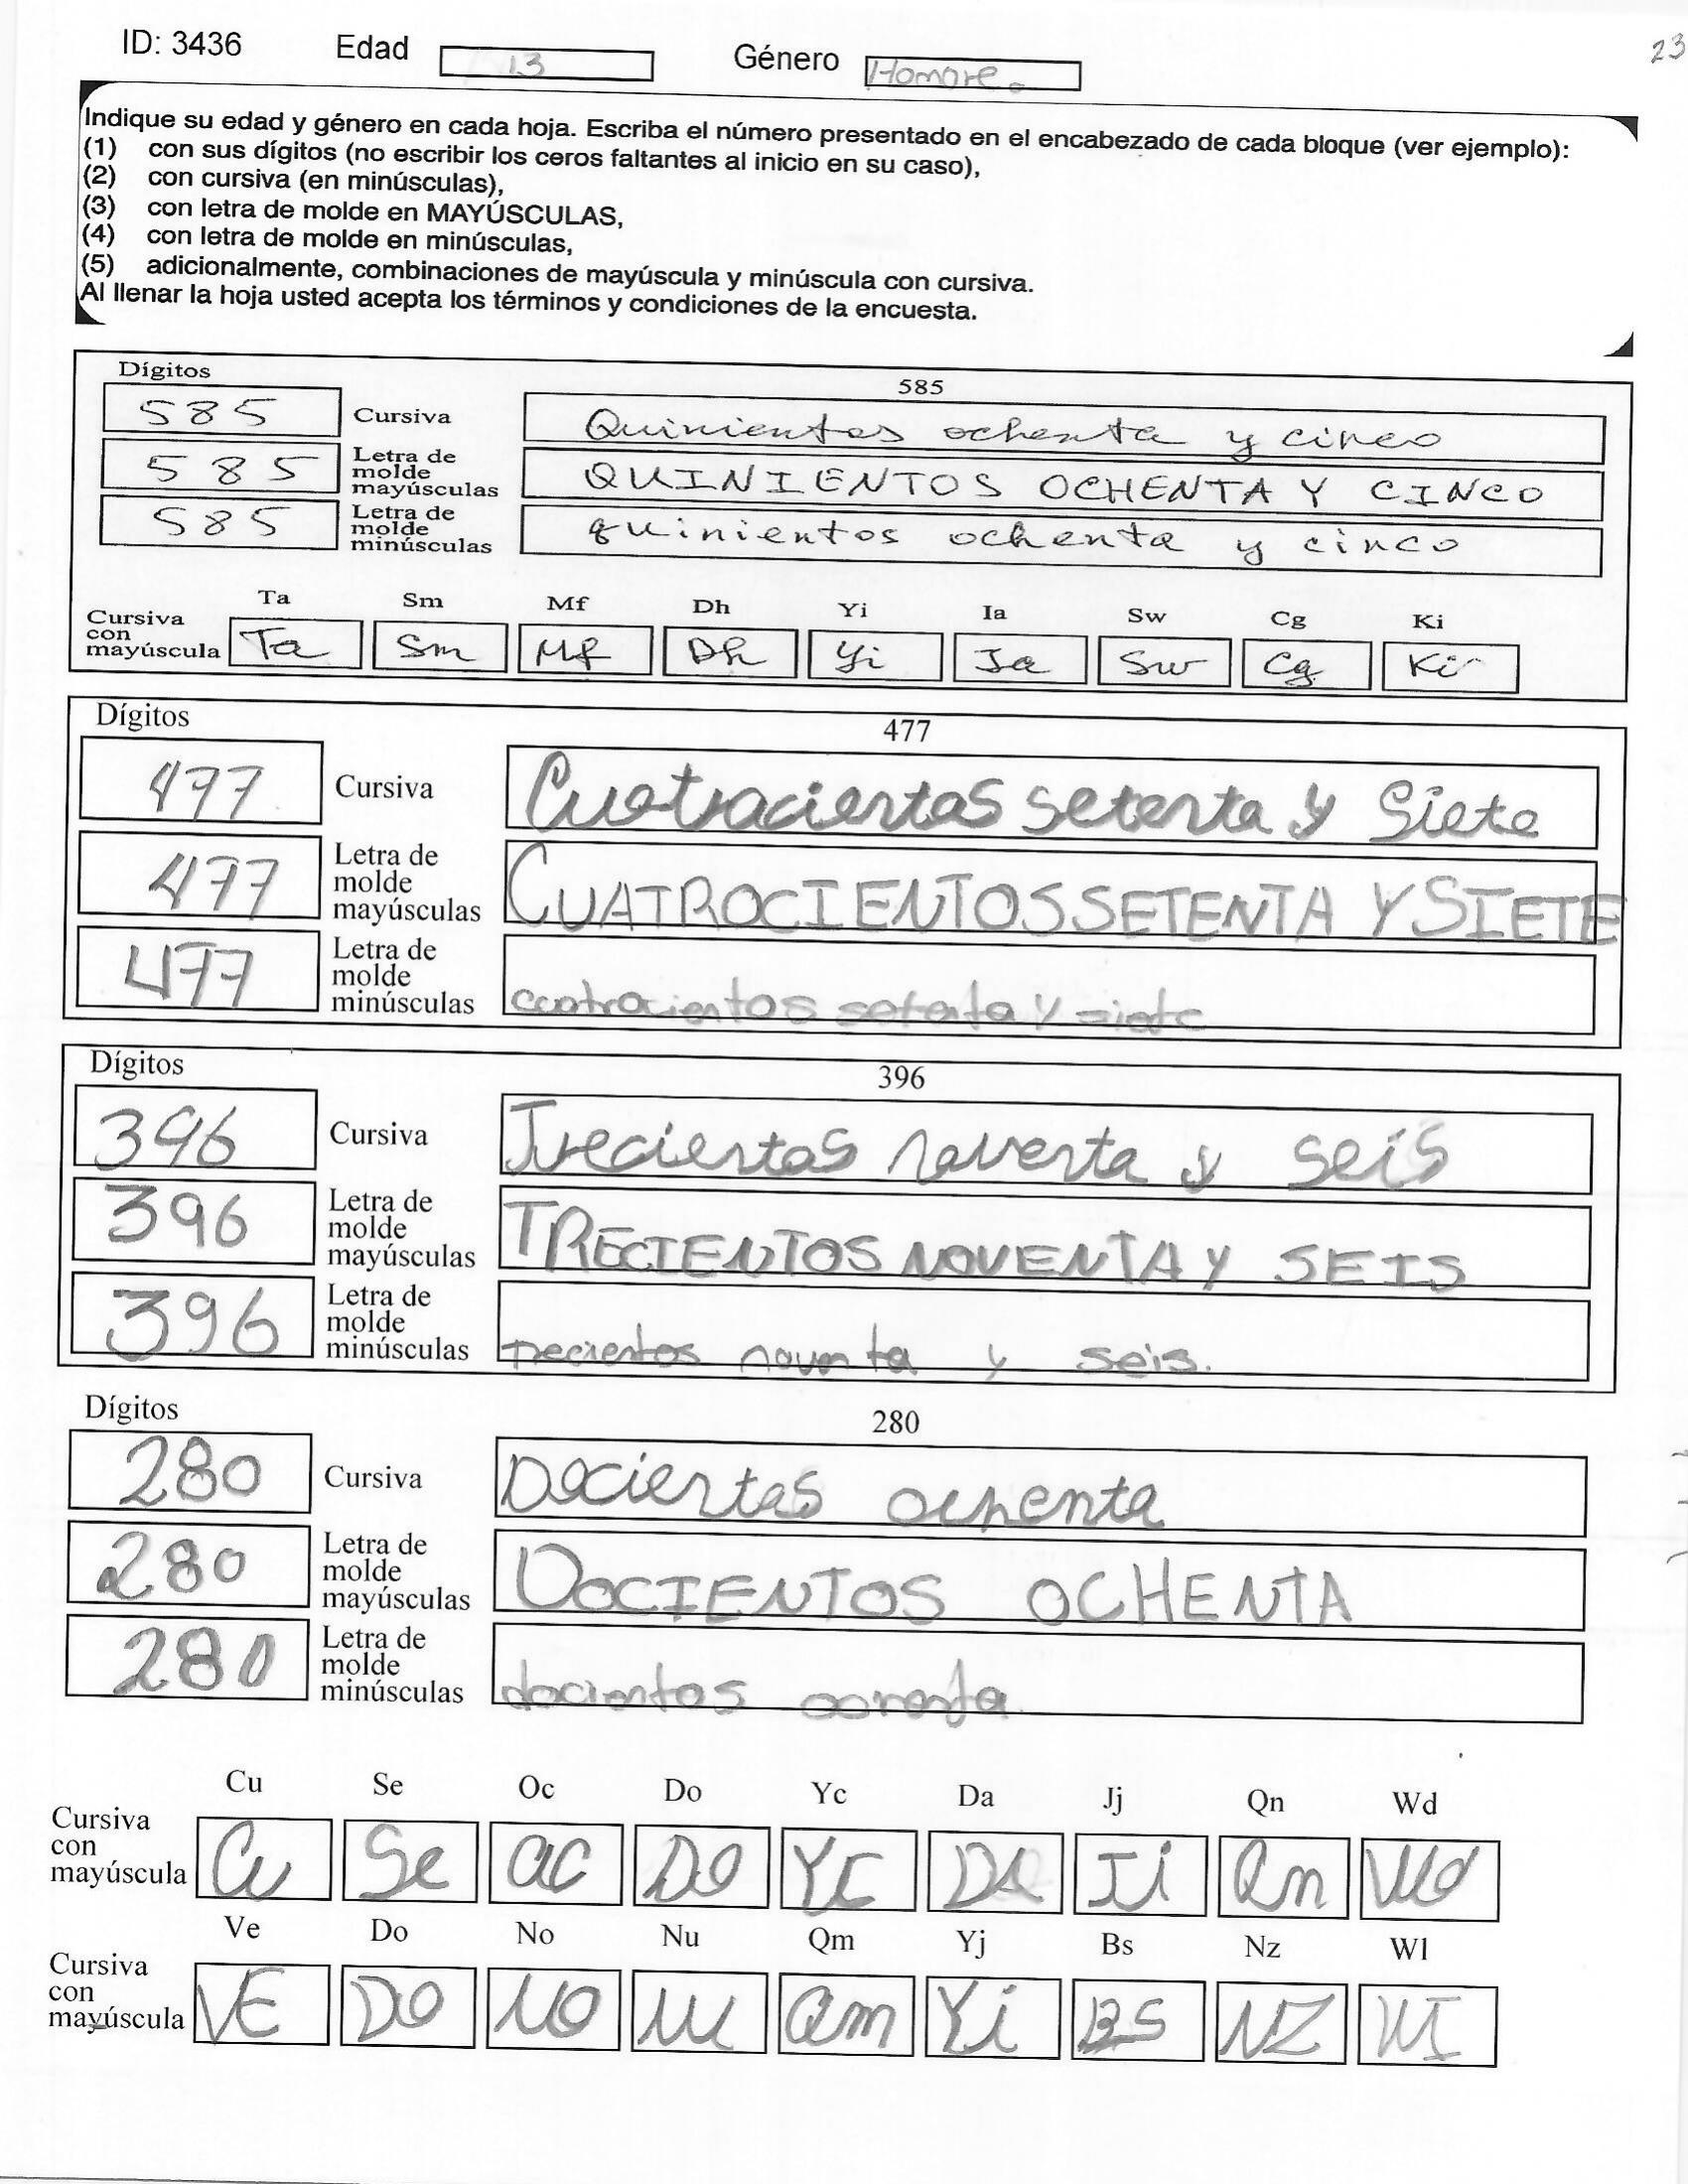 ID: 3436 Edad 13 Género Hombre. 23
Indique su edad y género en cada hoja. Escriba el número presentado en el encabezado de cada bloque (ver ejemplo):
(1) con sus dígitos (no escribir los ceros faltantes al inicio en su caso),
(2) con cursiva (en minúsculas),
(3) con letra de molde en MAYÚSCULAS,
(4) con letra de molde en minúsculas,
(5) adicionalmente, combinaciones de mayúscula y minúscula con cursiva.
Al llenar la hoja usted acepta los términos y condiciones de la encuesta.
Dígitos 585
585 Cursiva Quinientos ochenta y cinco
585 Letra de molde mayúsculas QUINIENTOS OCHENTA Y CINCO
585 Letra de molde minúsculas quinientos ochenta y cinco
Ta Sm Mf Dh Yi Ia Sw Cg Ki
Cursiva con mayúscula Ta Sm Mf Dh Yi Ia Sw Cg Ki
Dígitos 477
477 Cursiva Cuatrocientos setenta y Siete
477 Letra de molde mayúsculas CUATROCIENTOS SETENTA Y SIETE
477 Letra de molde minúsculas cuatrocientos setenta y siete
Dígitos 396
396 Cursiva Trecientos noventa y seis
396 Letra de molde mayúsculas TRECIENTOS NOVENTA Y SEIS
396 Letra de molde minúsculas trecientos noventa y seis.
Dígitos 280
280 Cursiva Docientos ochenta
280 Letra de molde mayúsculas DOCIENTOS OCHENTA
280 Letra de molde minúsculas docientos
Cu Se Oc Do Yc Da Jj Qn Wd
Cursiva con mayúscula Cu Se Oc Do Yc Da Ji Qn Wd
Ve Do No Nu Qm Yj Bs Nz Wl
Cursiva con mayúscula VE Do No Nu Qm Yi BS NZ WI